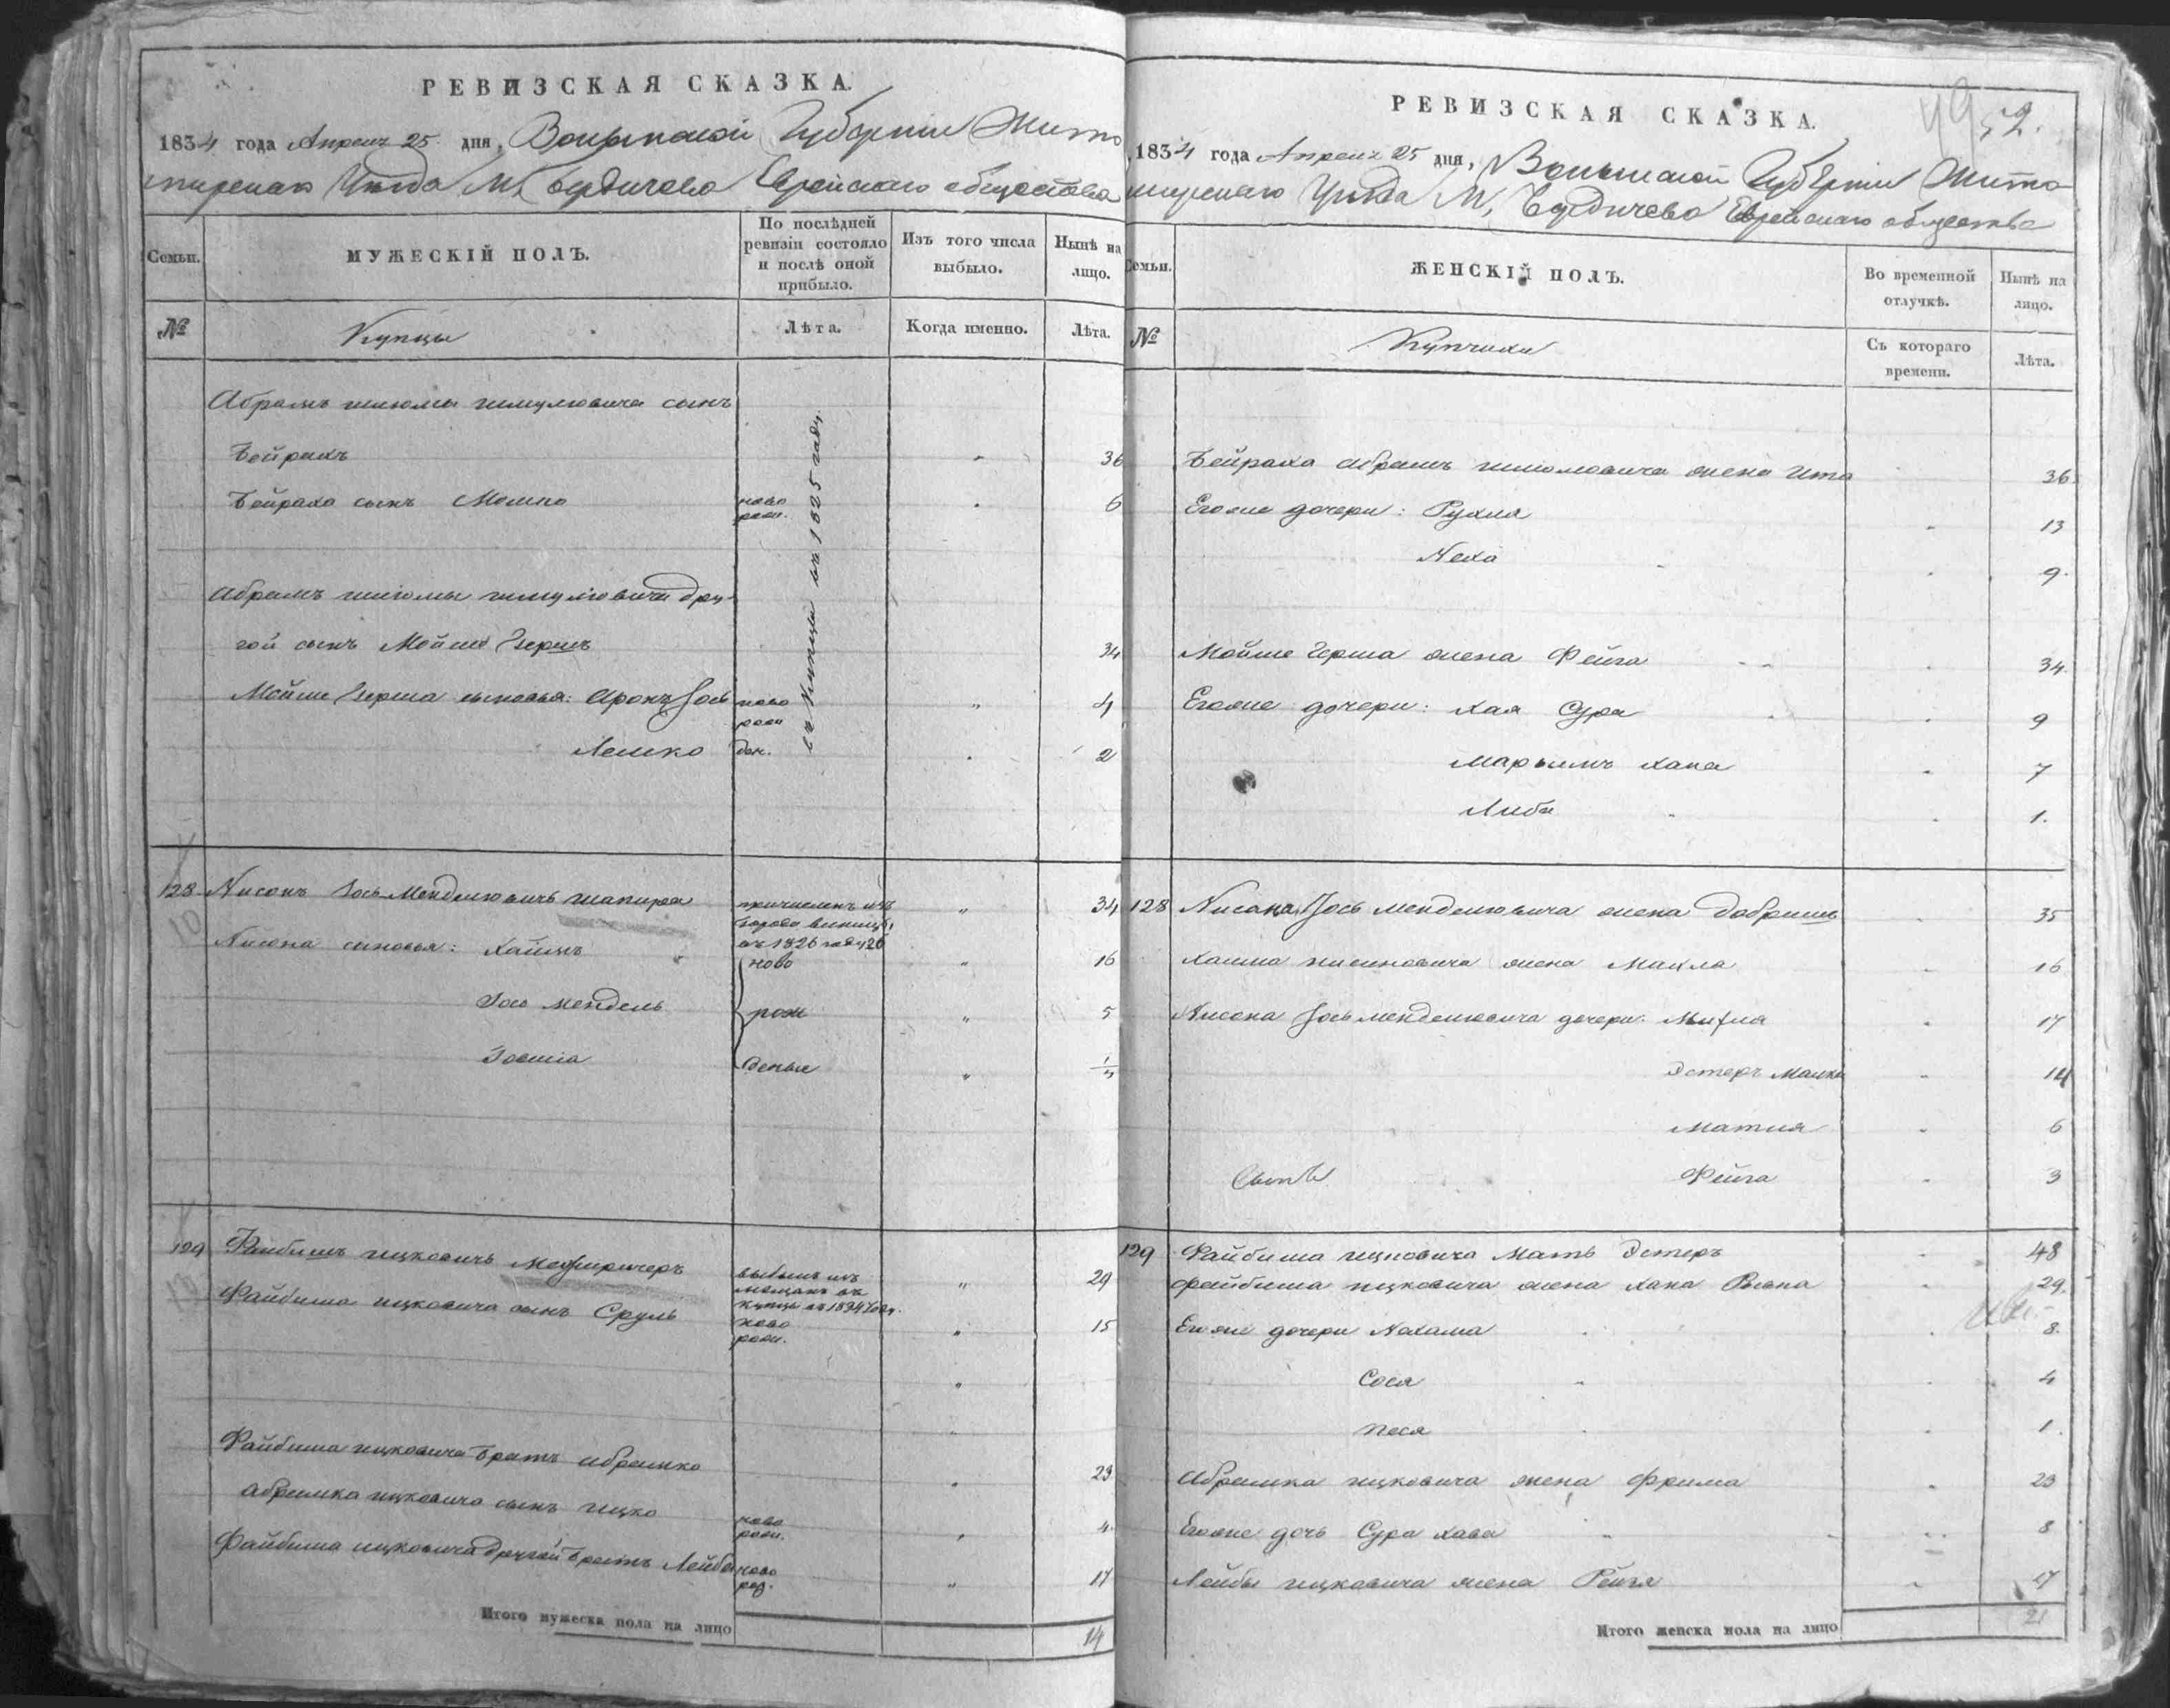 РЕВИЗСКАЯ СКАЗКА.
1834 года Апреля 25 дня, Волынской Губернии Жито
мирскаго Уезда М, Бердичева Еврейскаго общества
Семьи.
МУЖЕСКІЙ ПОЛЪ.
По послѣдней ревизіи состояло и послѣ оной прибыло.
Изъ того числа выбыло.
Нынѣ на лицо.
№
Купцы
Лѣта.
Когда именно.
Лѣта.
Абрамъ шліомы шмулювича сынъ
Бейрахъ 36
Бейраха сынъ Мошко ново рож. 6
съ купцы въ 1825 году
Абрамъ шліомы шмулювича дру-
гой сынъ Мойше Гершъ 34
Мойше Герша сыновья: Аронъ Іось ново рож 4
Лешко ден. 2
128 Нисонъ Іось Менделювичъ шапира причисленъ изъ города винницы въ 1826 году 26 34
Нисона сыновья: Хаимъ ново 16
Іось мендель рож 5
Іовшіа деные
129 Файбишъ ицковичъ Межиричеръ выбылъ изъ мещанъ въ купцы въ 1834 году 29
Файбиша ицковича сынъ Сруль ново рож. 15
Файбиша ицковича братъ абрамко 23
абрамка ицковича сынъ ицко ново рож. 4
Файбиша ицковича другой братъ Лейба ново род. 17
Итого мужеска пола на лицо 14
РЕВИЗСКАЯ СКАЗКА.
49 52.
1834 года Апреля 25 дня, Волынской Губерніи Жито
мирскаго Уезда М, Бердичева Еврейскаго общества
Семьи.
ЖЕНСКІЙ ПОЛЪ.
Во временной отлучкѣ.
Нынѣ на лицо.
№
Купчихи
Съ котораго времени.
Лѣта.
Бейраха абрамъ шліомовича жена Ита 36
Егоже дочери: Рухля 13
Неха 9.
Мойше Герша жена Фейга 34.
Егоже дочери: хая Сура 9
марьямъ хана 7
Либа 1.
128 Нисана Іось менделювича жена Добришъ 35
Хаима нисоновича жена Махля 16
Нисона Іось менделювича дочери: 17
Эстеръ Малка 14
матля 6
Фейга 3
129 Файбиша ицковича мать Эстеръ 48
файбиша ицковича жена хана Ривка 29.
Егоже дочери Нехама 8.
Сося 4
песя 1.
Абрамка ицковича жена Фрима 23
Егоже дочь Сура хава 8
Лейбы ицковича жена Рейзя 17
Итого женска пола на лицо 21